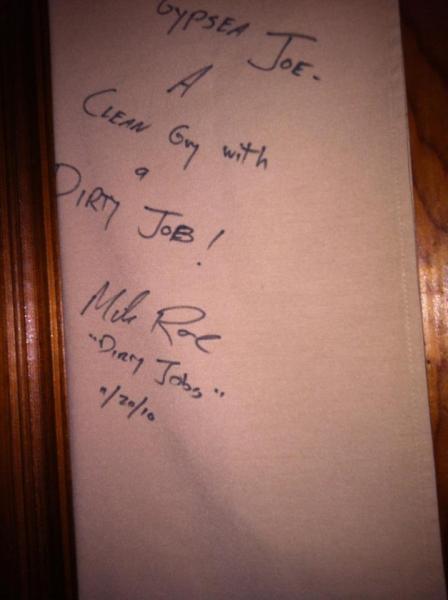 GYPSEA JOE-
A
CLEAN GUY with
a
DIRTY JOB!
Mike Rowe
"DIRTY JobS"
11/20/10